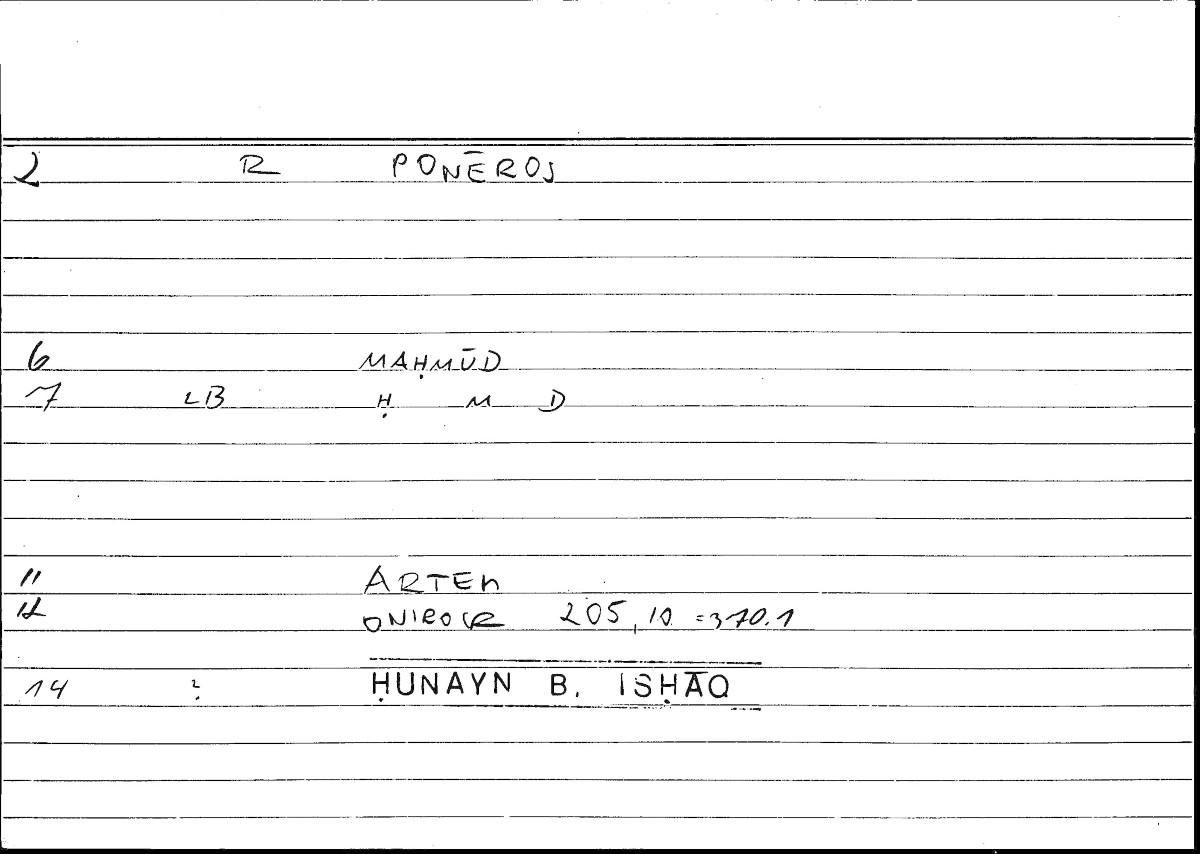 2 R PONĒROS
6 MAḤMŪD
7 LB Ḥ M D
11 ARTEM
12 ONIROCR 205,10 =370.1
14 ? ḤUNAYN B. ISḤĀQ